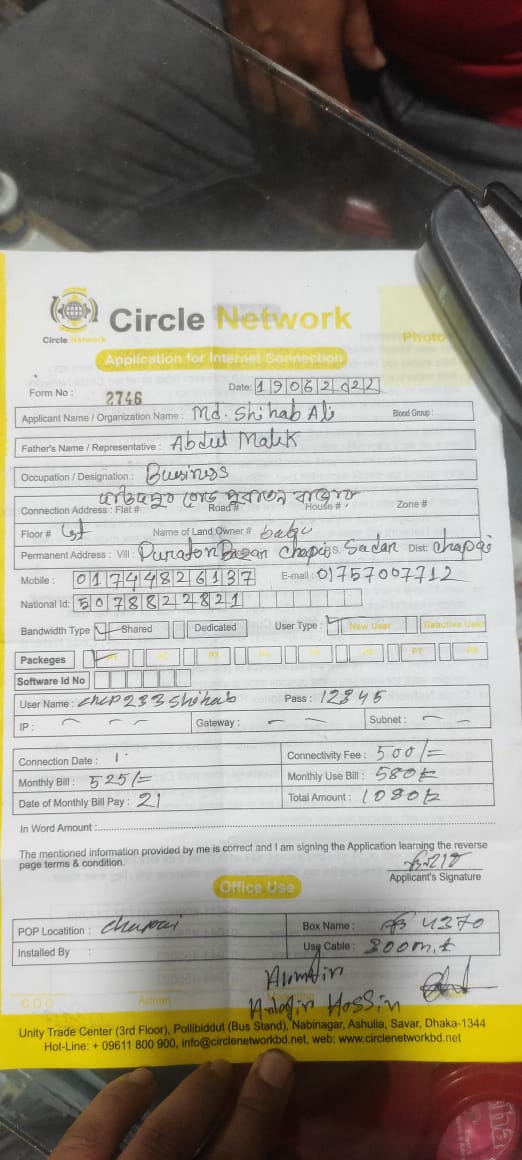 Circle Network
Circle Network
Photo
Application for Internet Connection
Form No : 2746 Date: 19062022
Applicant Name / Organization Name : Md. Shihab Ali Blood Group :
Father's Name / Representative : Abdul Malik
Occupation / Designation : Business
Connection Address : Flat # Road# House # Zone #
Floor # 1st Name of Land Owner # babu
Permanent Address : Vill : Puraton Bazar Chapai Sadar Dist: Chapai
Mobile : 01744826137 E-mail : 01757007712
National Id: 5078822821
Bandwidth Type Shared Dedicated User Type : New User Reactive User
Packeges P1 P2 P3 P4 P5 P6 P7 P8
Software Id No
User Name : chcp233shihab Pass : 12345
IP : Gateway : Subnet :
Connection Date : 1 Connectivity Fee : 500/=
Monthly Bill : 525/= Monthly Use Bill : 580/=
Date of Monthly Bill Pay : 21 Total Amount : 1080/=
In Word Amount :
The mentioned information provided by me is correct and I am signing the Application learning the reverse
page terms & condition.
Applicant's Signature
Office Use
POP Locatition : Chapai Box Name : 4370
Installed By : Use Cable : 300m
C.O.O Admin
Hossin
Unity Trade Center (3rd Floor), Pollibiddut (Bus Stand), Nabinagar, Ashulia, Savar, Dhaka-1344
Hot-Line: + 09611 800 900, info@circlenetworkbd.net, web: www.circlenetworkbd.net